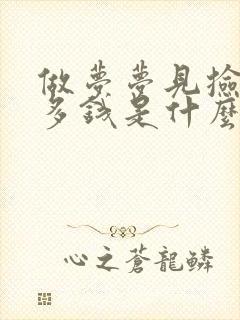 做夢夢見撿
多錢是什麼
心之蒼龍鱗